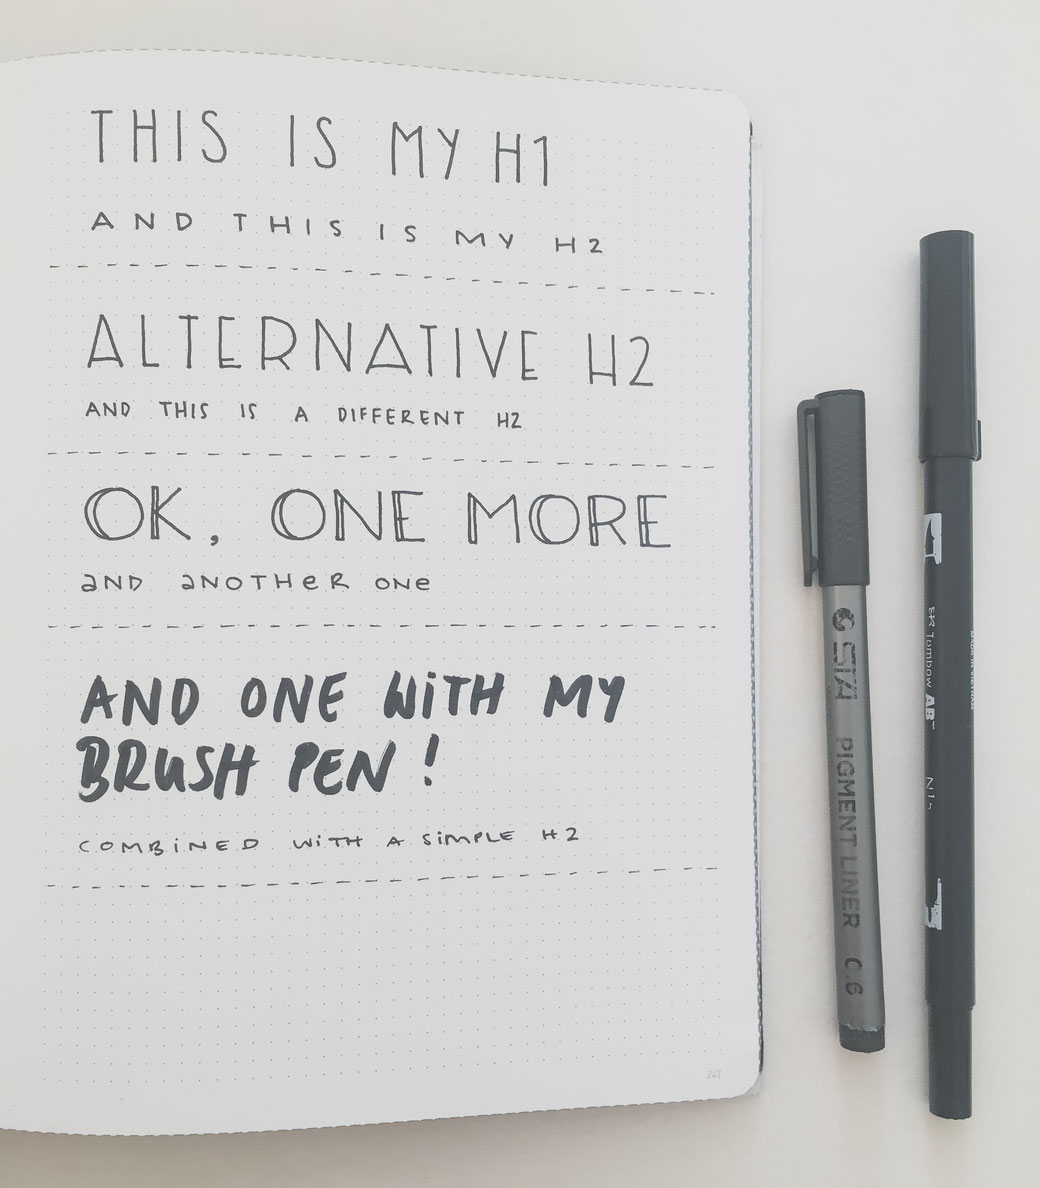 THIS IS MY H1
AND THIS IS MY H2
ALTERNATIVE H2
AND THIS IS A DIFFERENT H2
OK, ONE MORE
aND aNOTHeR ONe
AND ONE WiTH MY
BRUSH PEN!
COMBiNED WiTH A SiMPLE H2
247
PIGMENT LINER 0.6
Tombow AB